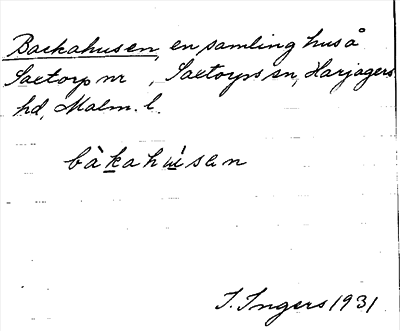 Backahusen, en samling hus å
Saxtorp nr , Saxtorps sn, Harjagers
hd, Malm. l.
bàkahúsen
I. Ingers 1931